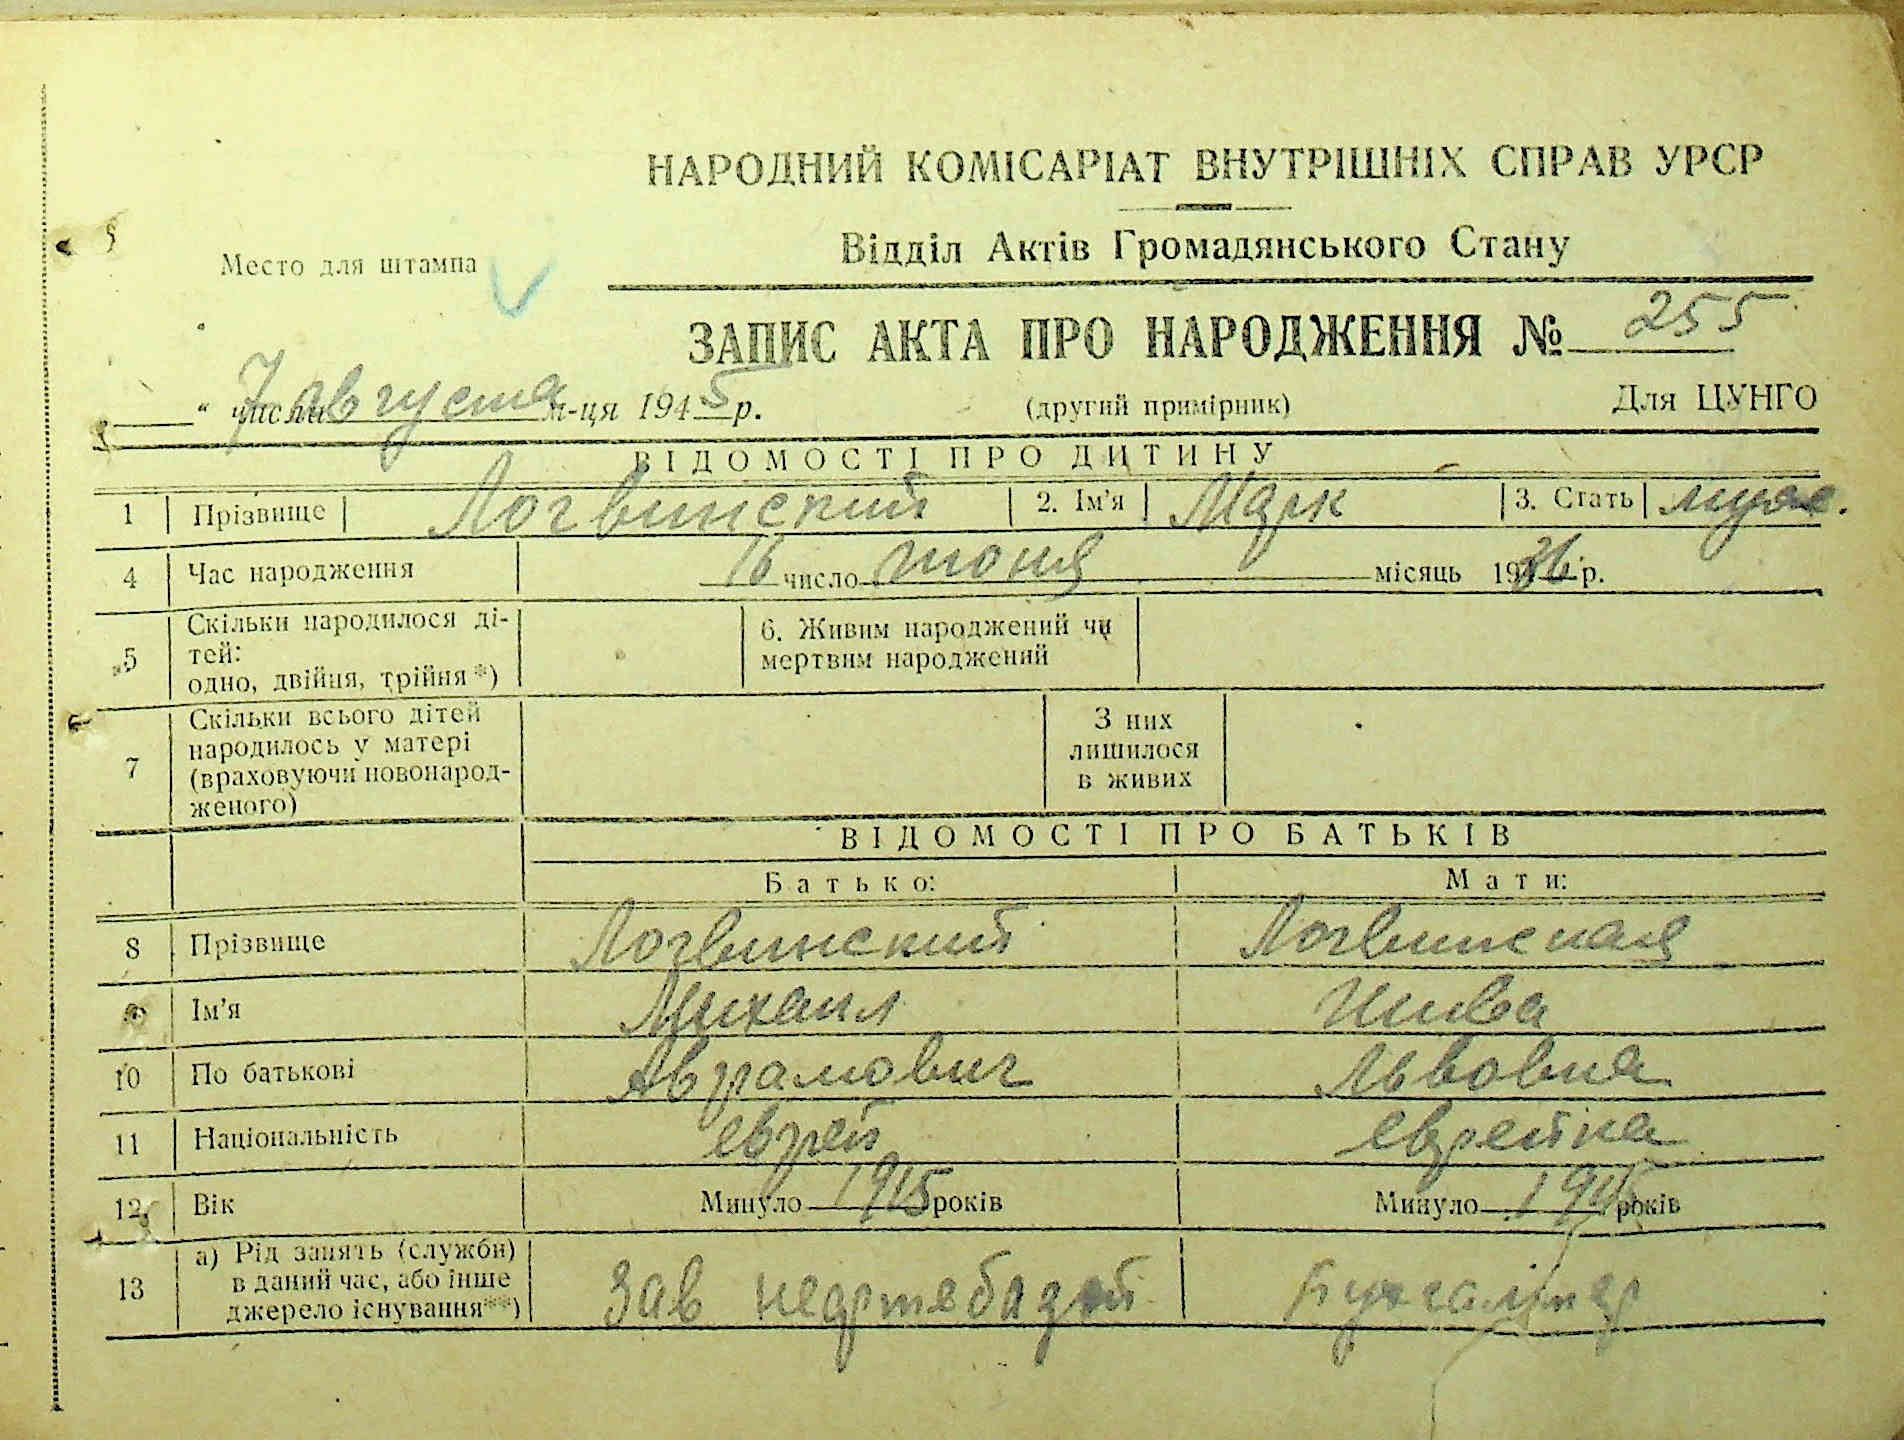 НАРОДНИЙ КОМІСАРІАТ ВНУТРІШНІХ СПРАВ УРСР
Відділ Актів Громадянського Стану
Место для штампа
ЗАПИС АКТА ПРО НАРОДЖЕННЯ № 255
" 7 числа августа м-ця 1945 р.
(другий примірник)
Для ЦУНГО
ВІДОМОСТІ ПРО ДИТИНУ
1 Прізвище Логвинский 2. Ім'я Марк 3. Стать муж.
4 Час народження 16 число июня місяць 1936 р.
5 Скільки народилося ді-
тей:
одно, двійня, трійня*)
6. Живим народжений чи
мертвим народжений
7 Скільки всього дітей
народилось у матері
(враховуючи новонарод-
женого)
З них
лишилося
в живих
ВІДОМОСТІ ПРО БАТЬКІВ
Батько: Мати:
8 Прізвище Логвинский Логвинская
9 Ім'я Михаил
10 По батькові Аврамович Львовна
11 Національність еврей еврейка
12 Вік Минуло 1915 років Минуло років
13 а) Рід занять (служби)
в даний час, або інше
джерело існування**)
Зав нефтебазой Бухгалтер